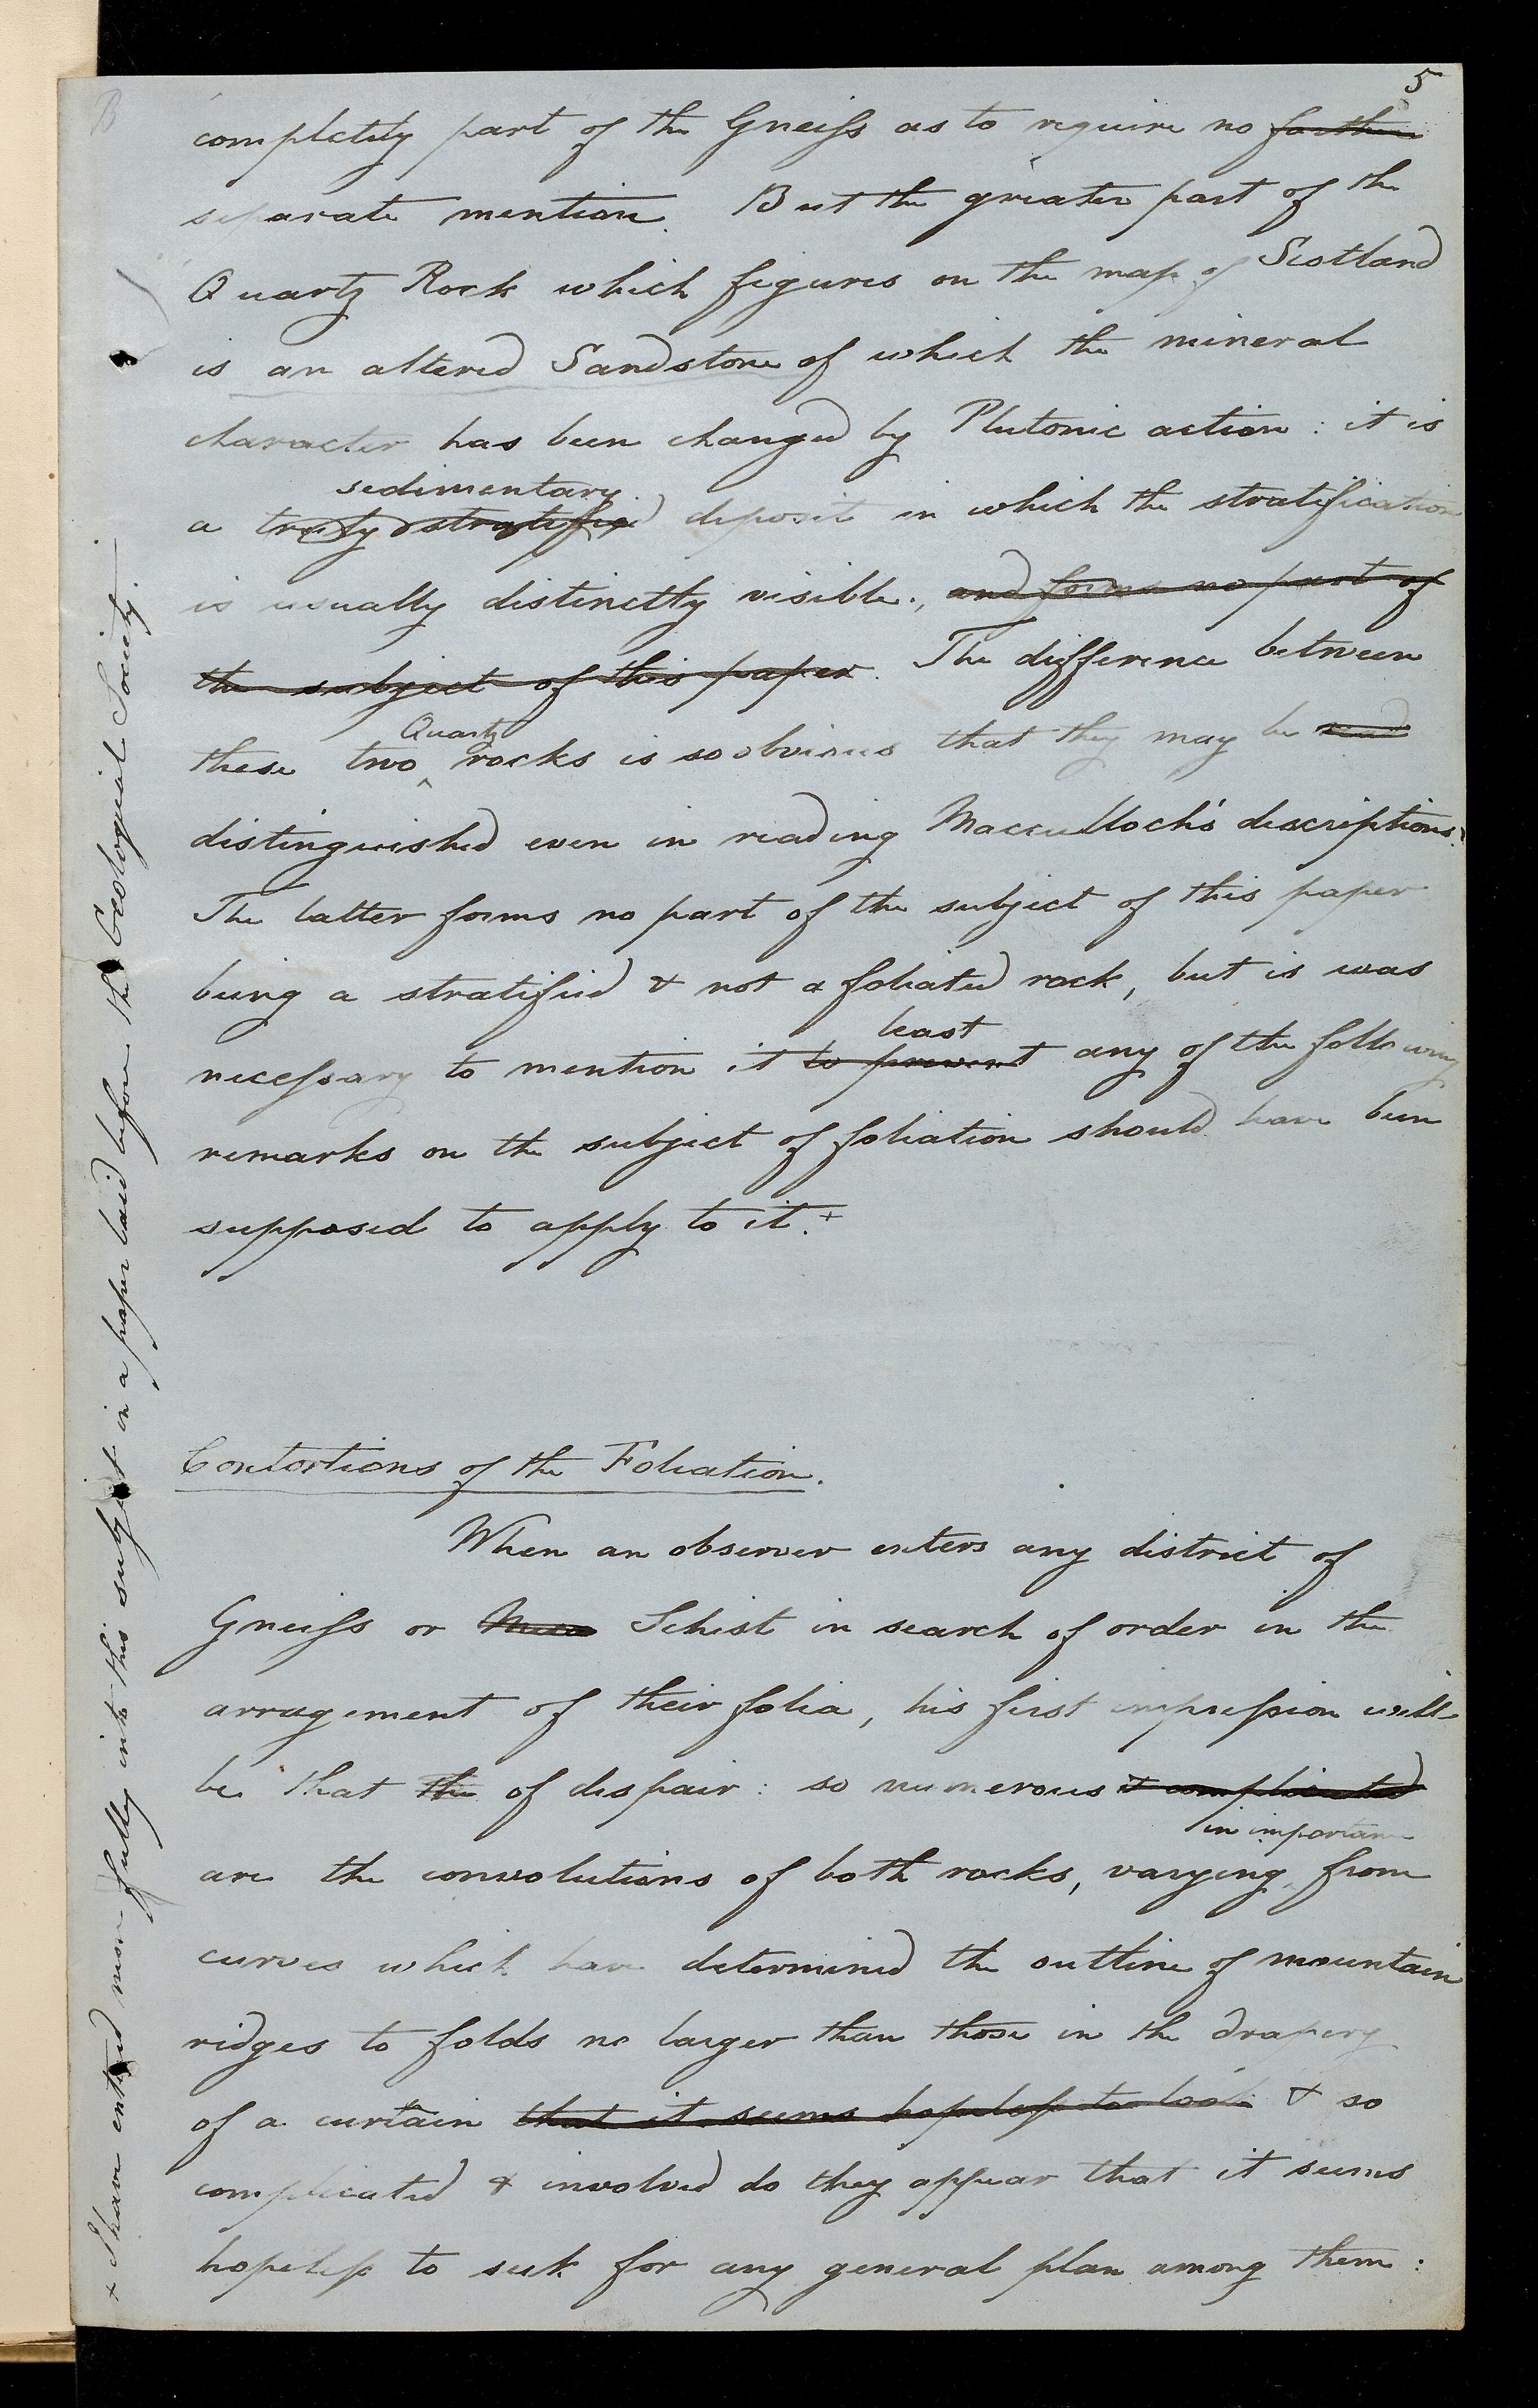 5
completely part of the Gneiss as to require no farther
separate mention. But the greater part of the
Quartz Rock which figures on the map of Scotland
is an altered Sandstone of which the mineral
character has been changed by Plutonic action: it is
sedimentary
a truly stratified deposit in which the stratification
is usually distinctly visible., and forms no part of
the subject of this paper. The difference between
Quartz
these two ^ rocks is so obvious that they may be
distinguished even in reading Macculloch's descriptions.
The latter forms no part of the subject of this paper
being a stratified & not a foliated rock, but is was
least
necessary to mention it to prevent any of the following
remarks on the subject of foliation should have been
supposed to apply to it.+
Contortions of the Foliation.
When an observer enters any district of
Gneiss or Mica Schist in search of order in the
arragement of their folia, his first impression will
be that the of despair: so numerous & complicated
in importance
are the convolutions of both rocks, varying from
curves which have determined the outline of mountain
ridges to folds no larger than those in the drapery
of a curtain that it seems hopeless to look & so
complicated & involved do they appear that it seems
hopeless to seek for any general plan among them:
+ I have entered more fully into this subject in a paper laid before the Geological Society.
B